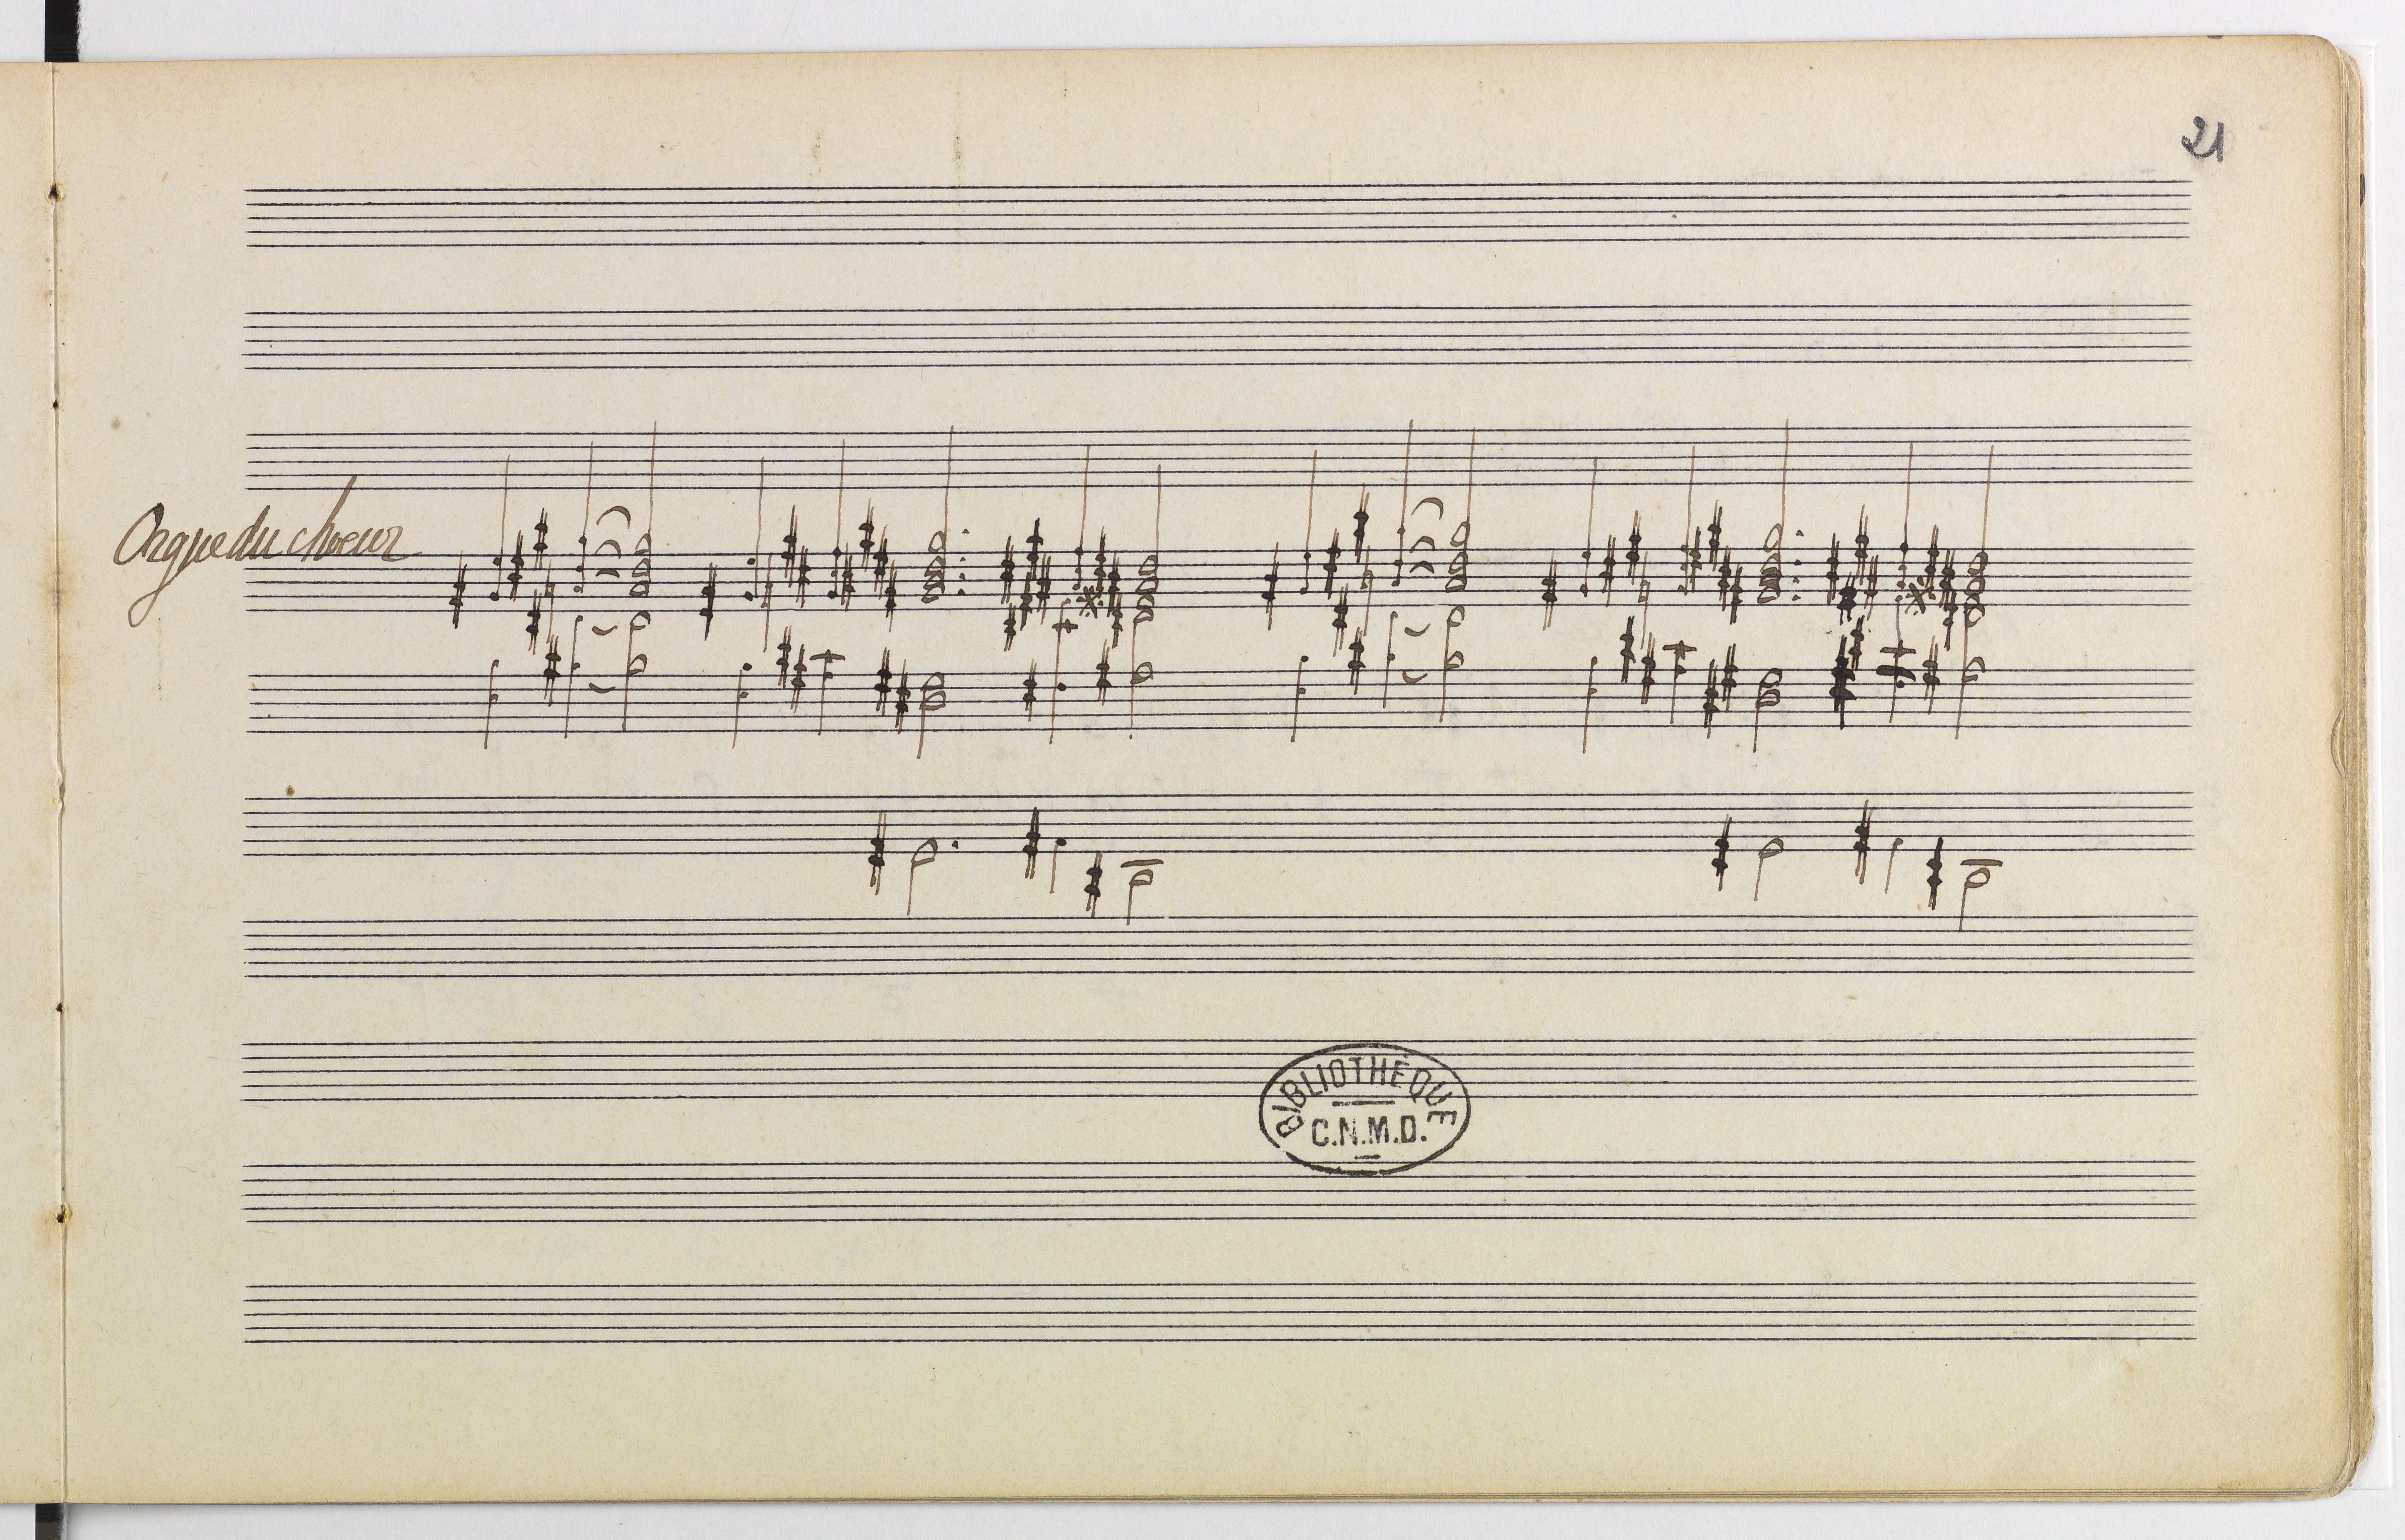 21
Orgue du choeur
BIBLIOTHÈQUE
C.N.M.D.